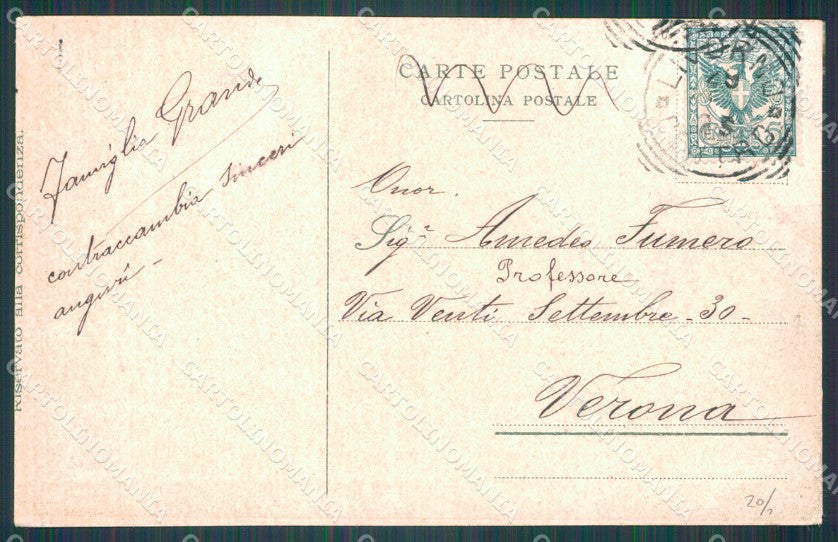 CARTE POSTALE
CARTOLINA POSTALE
Riservato alla corrispondenza.
Famiglia Grande
contraccambia sinceri
auguri -
Onor.
Sigr Amedeo Fumero
Professore
Via Venti Settembre - 30 -
Verona
20/1
CARTOLINOMANIA